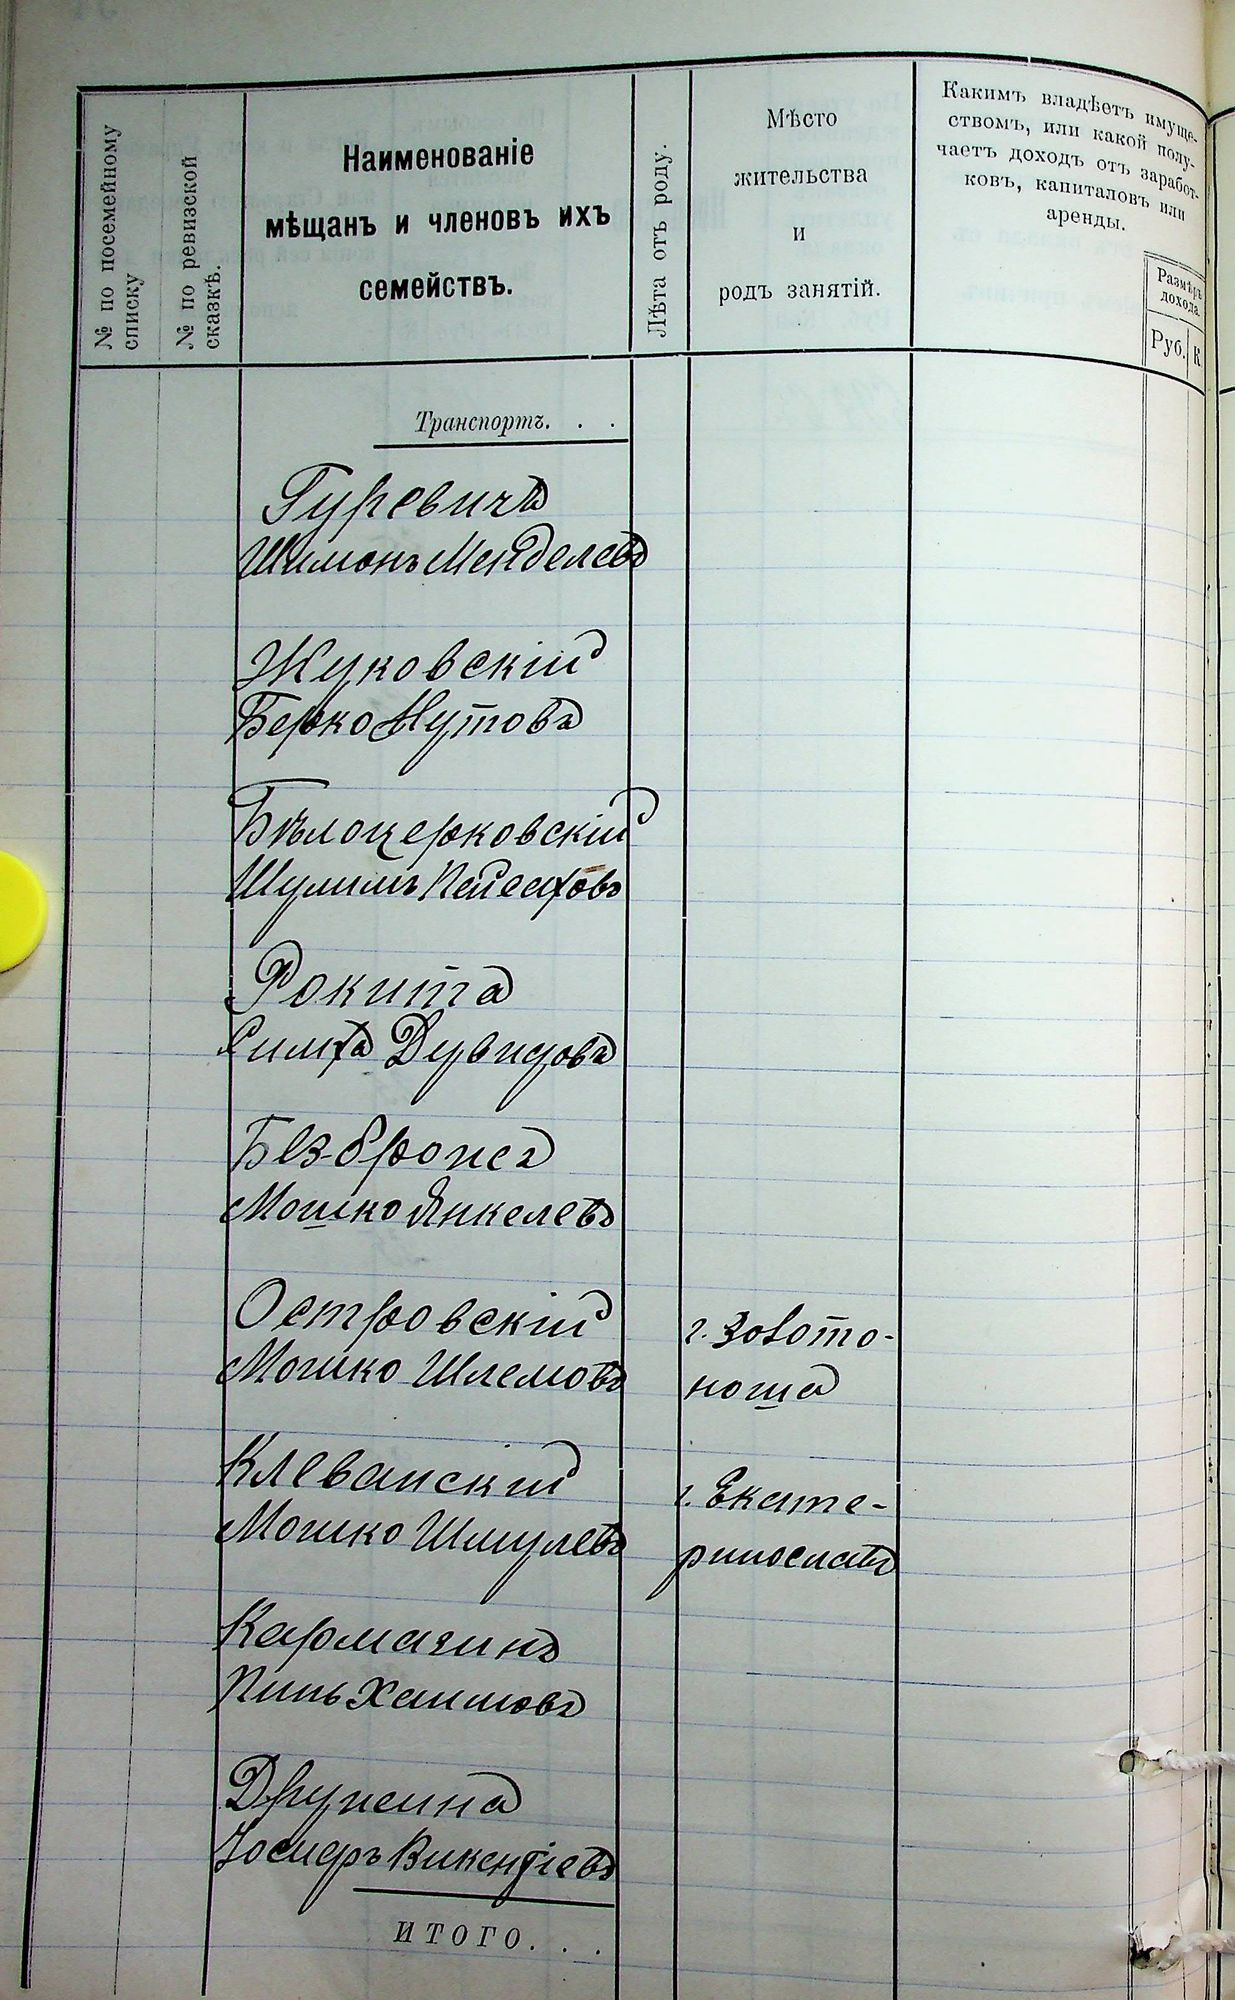 № по посемейному
списку
№ по ревизской
сказкѣ.
Наименованіе
мѣщанъ и членовъ ихъ
семействъ.
Лѣта отъ роду.
Мѣсто
жительства
и
родъ занятій.
Какимъ владѣетъ имуще-
ствомъ, или какой полу-
чаетъ доходъ отъ заработ-
ковъ, капиталовъ или
аренды.
Размѣръ
дохода.
Руб. К
Транспортъ. . .
Гуревичъ
Шимонъ Менделевъ
Жуковскій
Берко Нутовъ
Бѣлоцерковскій
Шулимъ Пейсаховъ
Рокита
Симха Дувидовъ
Безброжъ
Мошко Янкелевъ
Островскій
Мошко Шлемовъ
г. Золото-
ноша
Клеванскій
Мошко Шмулевъ
г. Екате-
ринославъ
Кармазинъ
Пинь Хаимовъ
Дружина
Іосифъ Викентіевъ
ИТОГО. . .